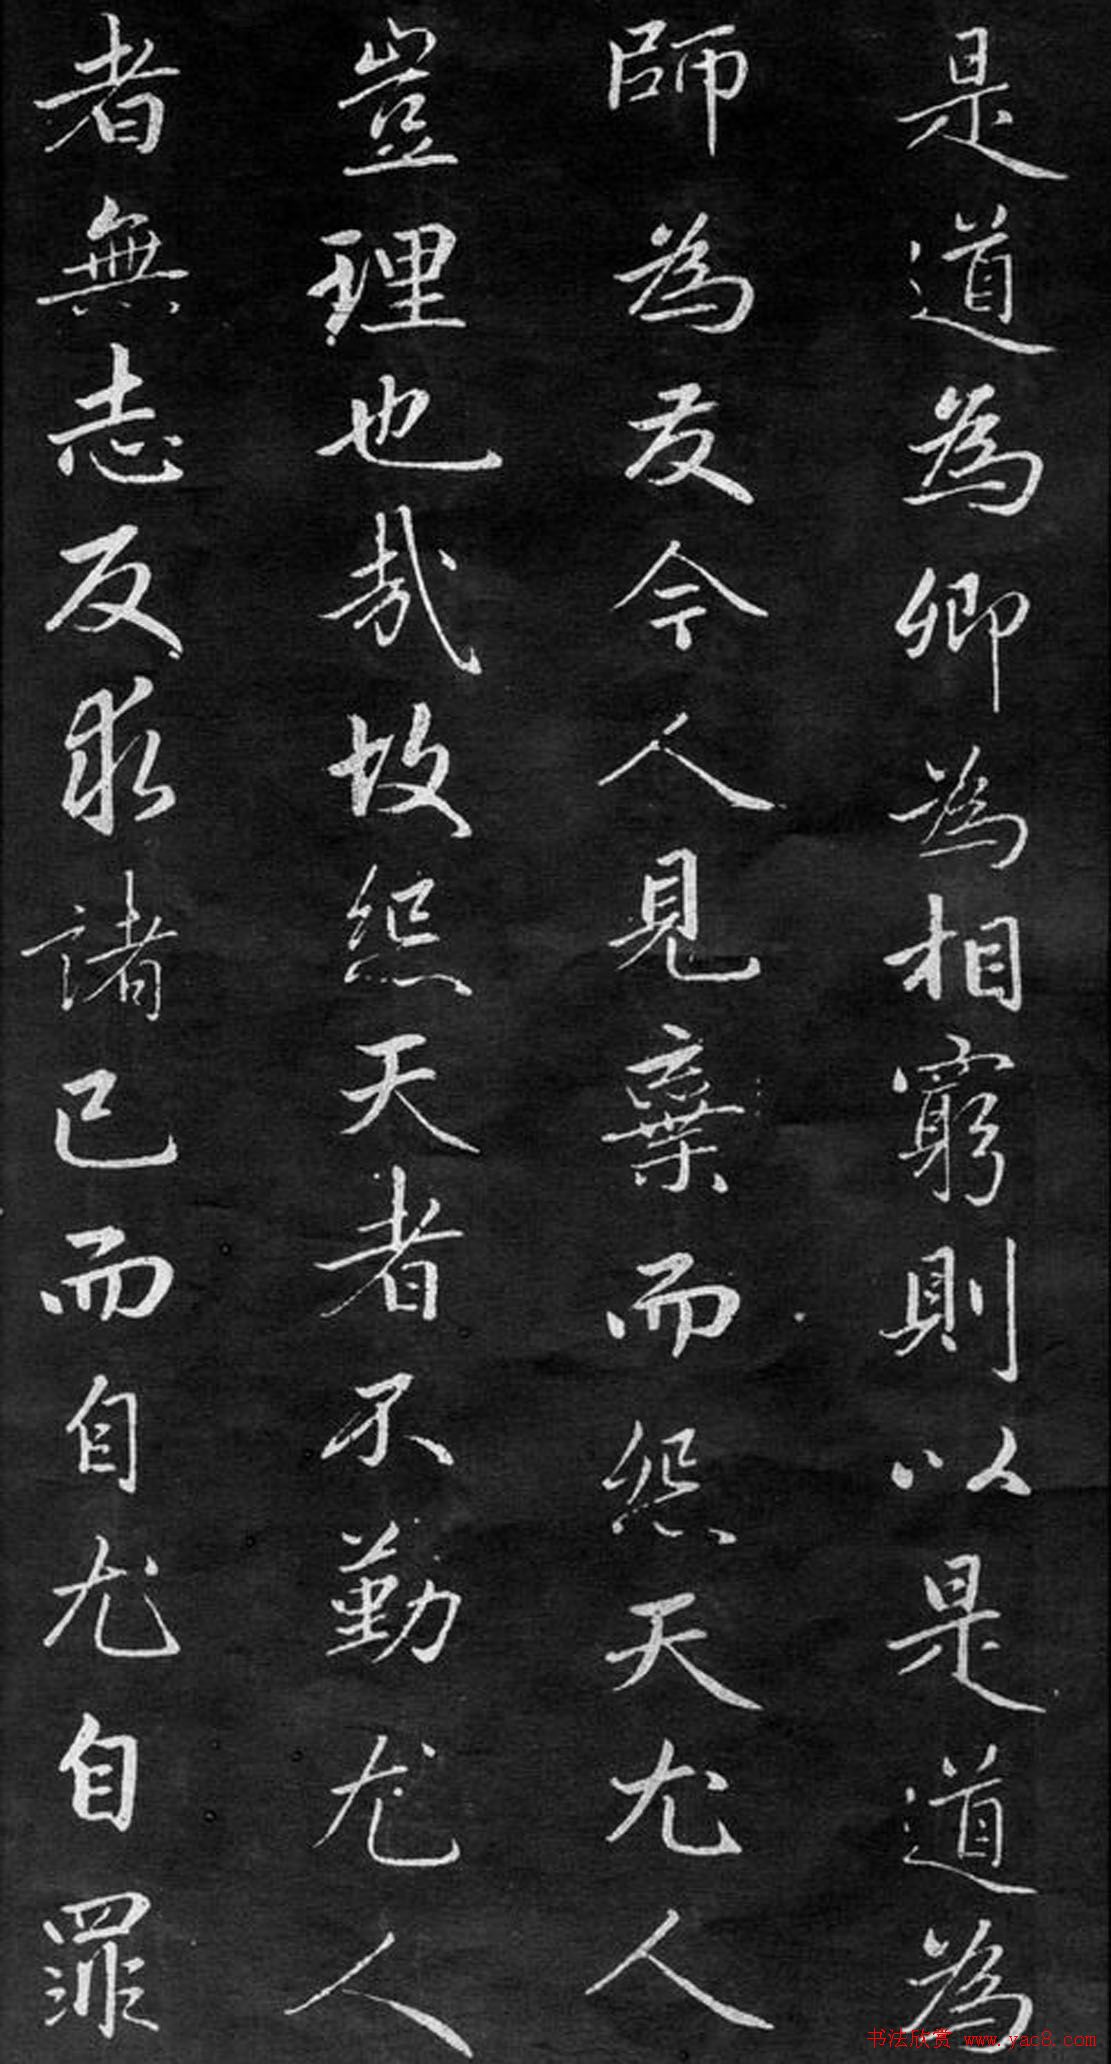 是道為卿為相窮則以是道為
師為友今人見棄而怨天尤人
豈理也哉故怨天者不勤尤人
者無志反求諸己而自尤自罪
书法欣赏 www.yac8.com